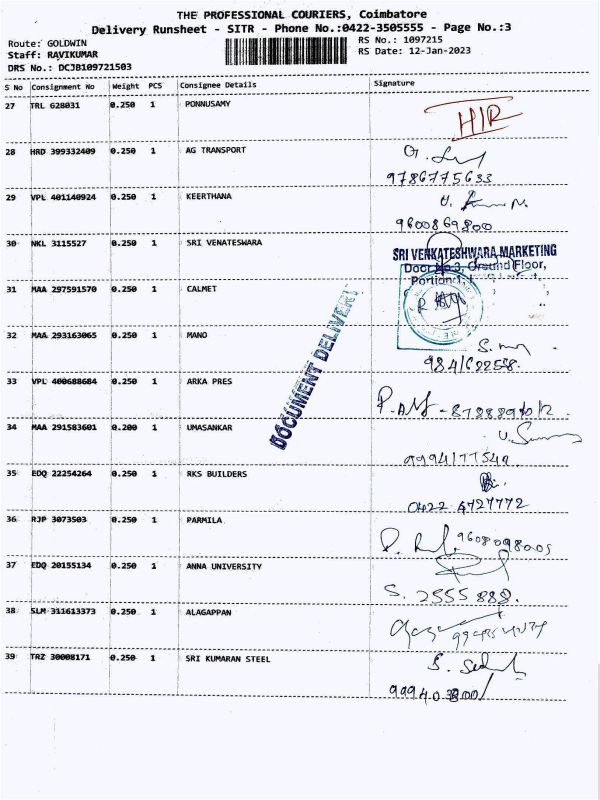 THE PROFESSIONAL COURIERS, Coimbatore
Delivery Runsheet - SITR - Phone No.:0422-3505555 - Page No.:3
Route: GOLDWIN
Staff: RAVIKUMAR
DRS No.: DCJB109721503
RS No.: 1097215
RS Date: 12-Jan-2023
S No Consignment No Weight PCS Consignee Details Signature
27 TRL 628031 0.250 1 PONNUSAMY
28 HRD 399332409 0.250 1 AG TRANSPORT
9786775633
29 VPL 401140924 0.250 1 KEERTHANA
9600869800
30 NKL 3115527 0.250 1 SRI VENATESWARA
SRI VENKATESHWARA MARKETING
Door No.3, Ground Floor,
31 MAA 297591570 0.250 1 CALMET
32 MAA 293163065 0.250 1 MANO
DOCUMENT DELIVERY
33 VPL 400688684 0.250 1 ARKA PRES
34 MAA 291583601 0.200 1 UMASANKAR
9994177549
35 EDQ 22254264 0.250 1 RKS BUILDERS
0422 4727772
36 RJP 3073503 0.250 1 PARMILA
9608098005
37 EDQ 20155134 0.250 1 ANNA UNIVERSITY
38 SLM 311613373 0.250 1 ALAGAPPAN
39 TRZ 30008171 0.250 1 SRI KUMARAN STEEL